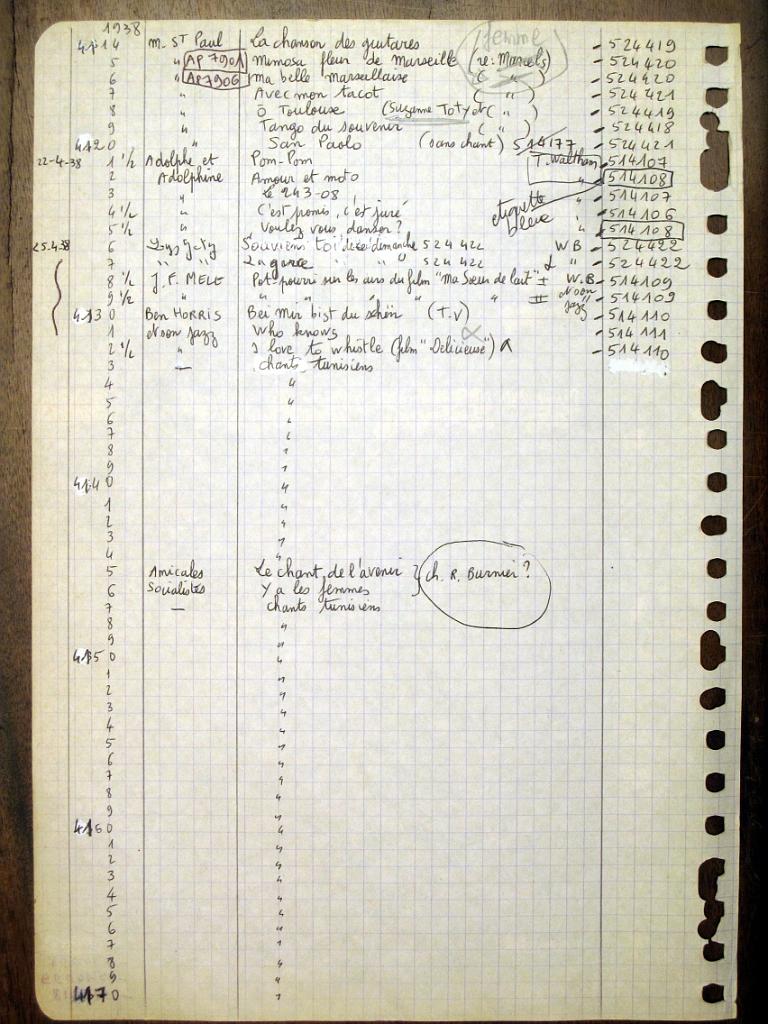 1938
4114 M. ST Paul La chanson des guitares femme - 524419
5 " AP 7901 Mimosa fleur de Marseille (re: Marcels) - 524420
6 " AP7906 ma belle marseillaise ( " ) - 524420
7 " Avec mon tacot ( " ) - 524421
8 " Ô Toulouse (Suzanne Totyde ( " ) - 524419
9 " Tango du souvenir ( " ) - 524418
4120 " San Paolo (sans chant) 514177 - 524421
22-4-38 1 1/2 Adolphe et Pom-Pom T. Waltham 514107
2 Adolphine Amour et moto " 514108
3 " Le 243-08 etiquette - 514107
4 1/2 " C'est promis, c'est juré bleue " - 514106
5 1/2 " Voulez vous danser? " 514108
25.4.38 6 Lys Gety Souviens toi de ce dimanche 524422 W.B - 524422
7 " " La garce " " 524422 L " - 524422
8 1/2 J.F. MELE Pot-pourri sur les airs du film "Ma Sœur de lait" I W.B - 514109
9 1/2 " " " " " " II Noon Jazz - 514109
4130 Ben HORRIS Bei mir bist du schön (T.V) - 514110
1 Noon Jazz Who knows - 514111
2 1/2 " I love to whistle (film "Délicieuse") - 514110
3 — chants tunisiens
4 "
5 "
6 "
7 "
8 "
9 "
4140 "
1 "
2 "
3 "
4 "
5 Amicales Le chant de l'avenir } ch. R. Burnier?
6 Socialistes Y a les femmes
7 — chants tunisiens
8 "
9 "
4150 "
1 "
2 "
3 "
4 "
5 "
6 "
7 "
8 "
9 "
4160 "
1 "
2 "
3 "
4 "
5 "
6 "
7 "
8 "
9 "
4170 "